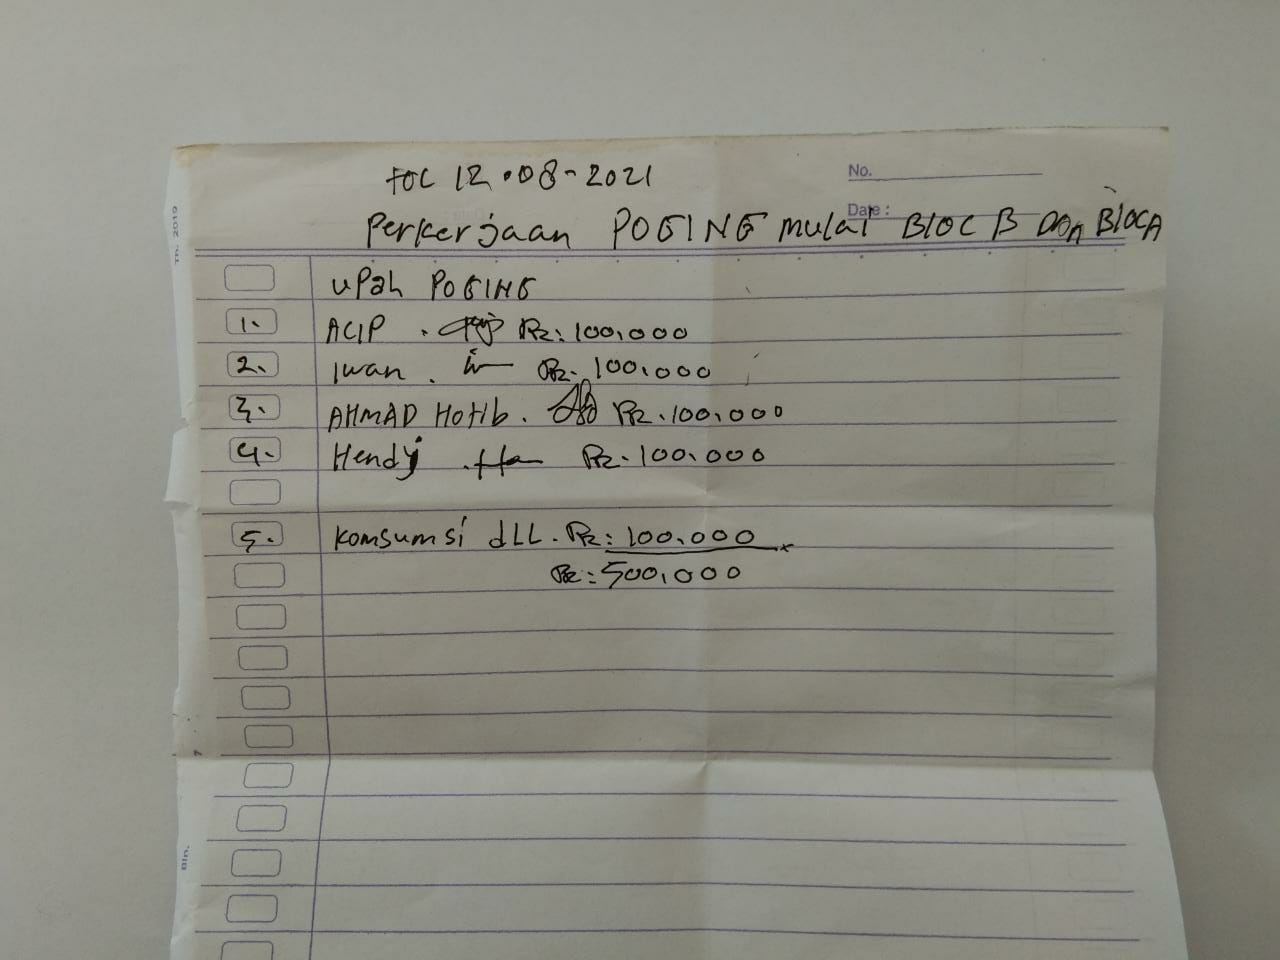 No.
TGL 12.08-2021
Date :
Perkerjaan POGING mulai BLOC B DAN BLOCA
Th. 2019
upah POGING
1. ACIP . Rp: 100.000
2. Iwan . Rp. 100.000
3. AHMAD HOTIB . Rp. 100.000
4. Hendy . Rp. 100.000
5. Komsumsi dLL . Rp: 100.000
Rp: 500.000
Bln.